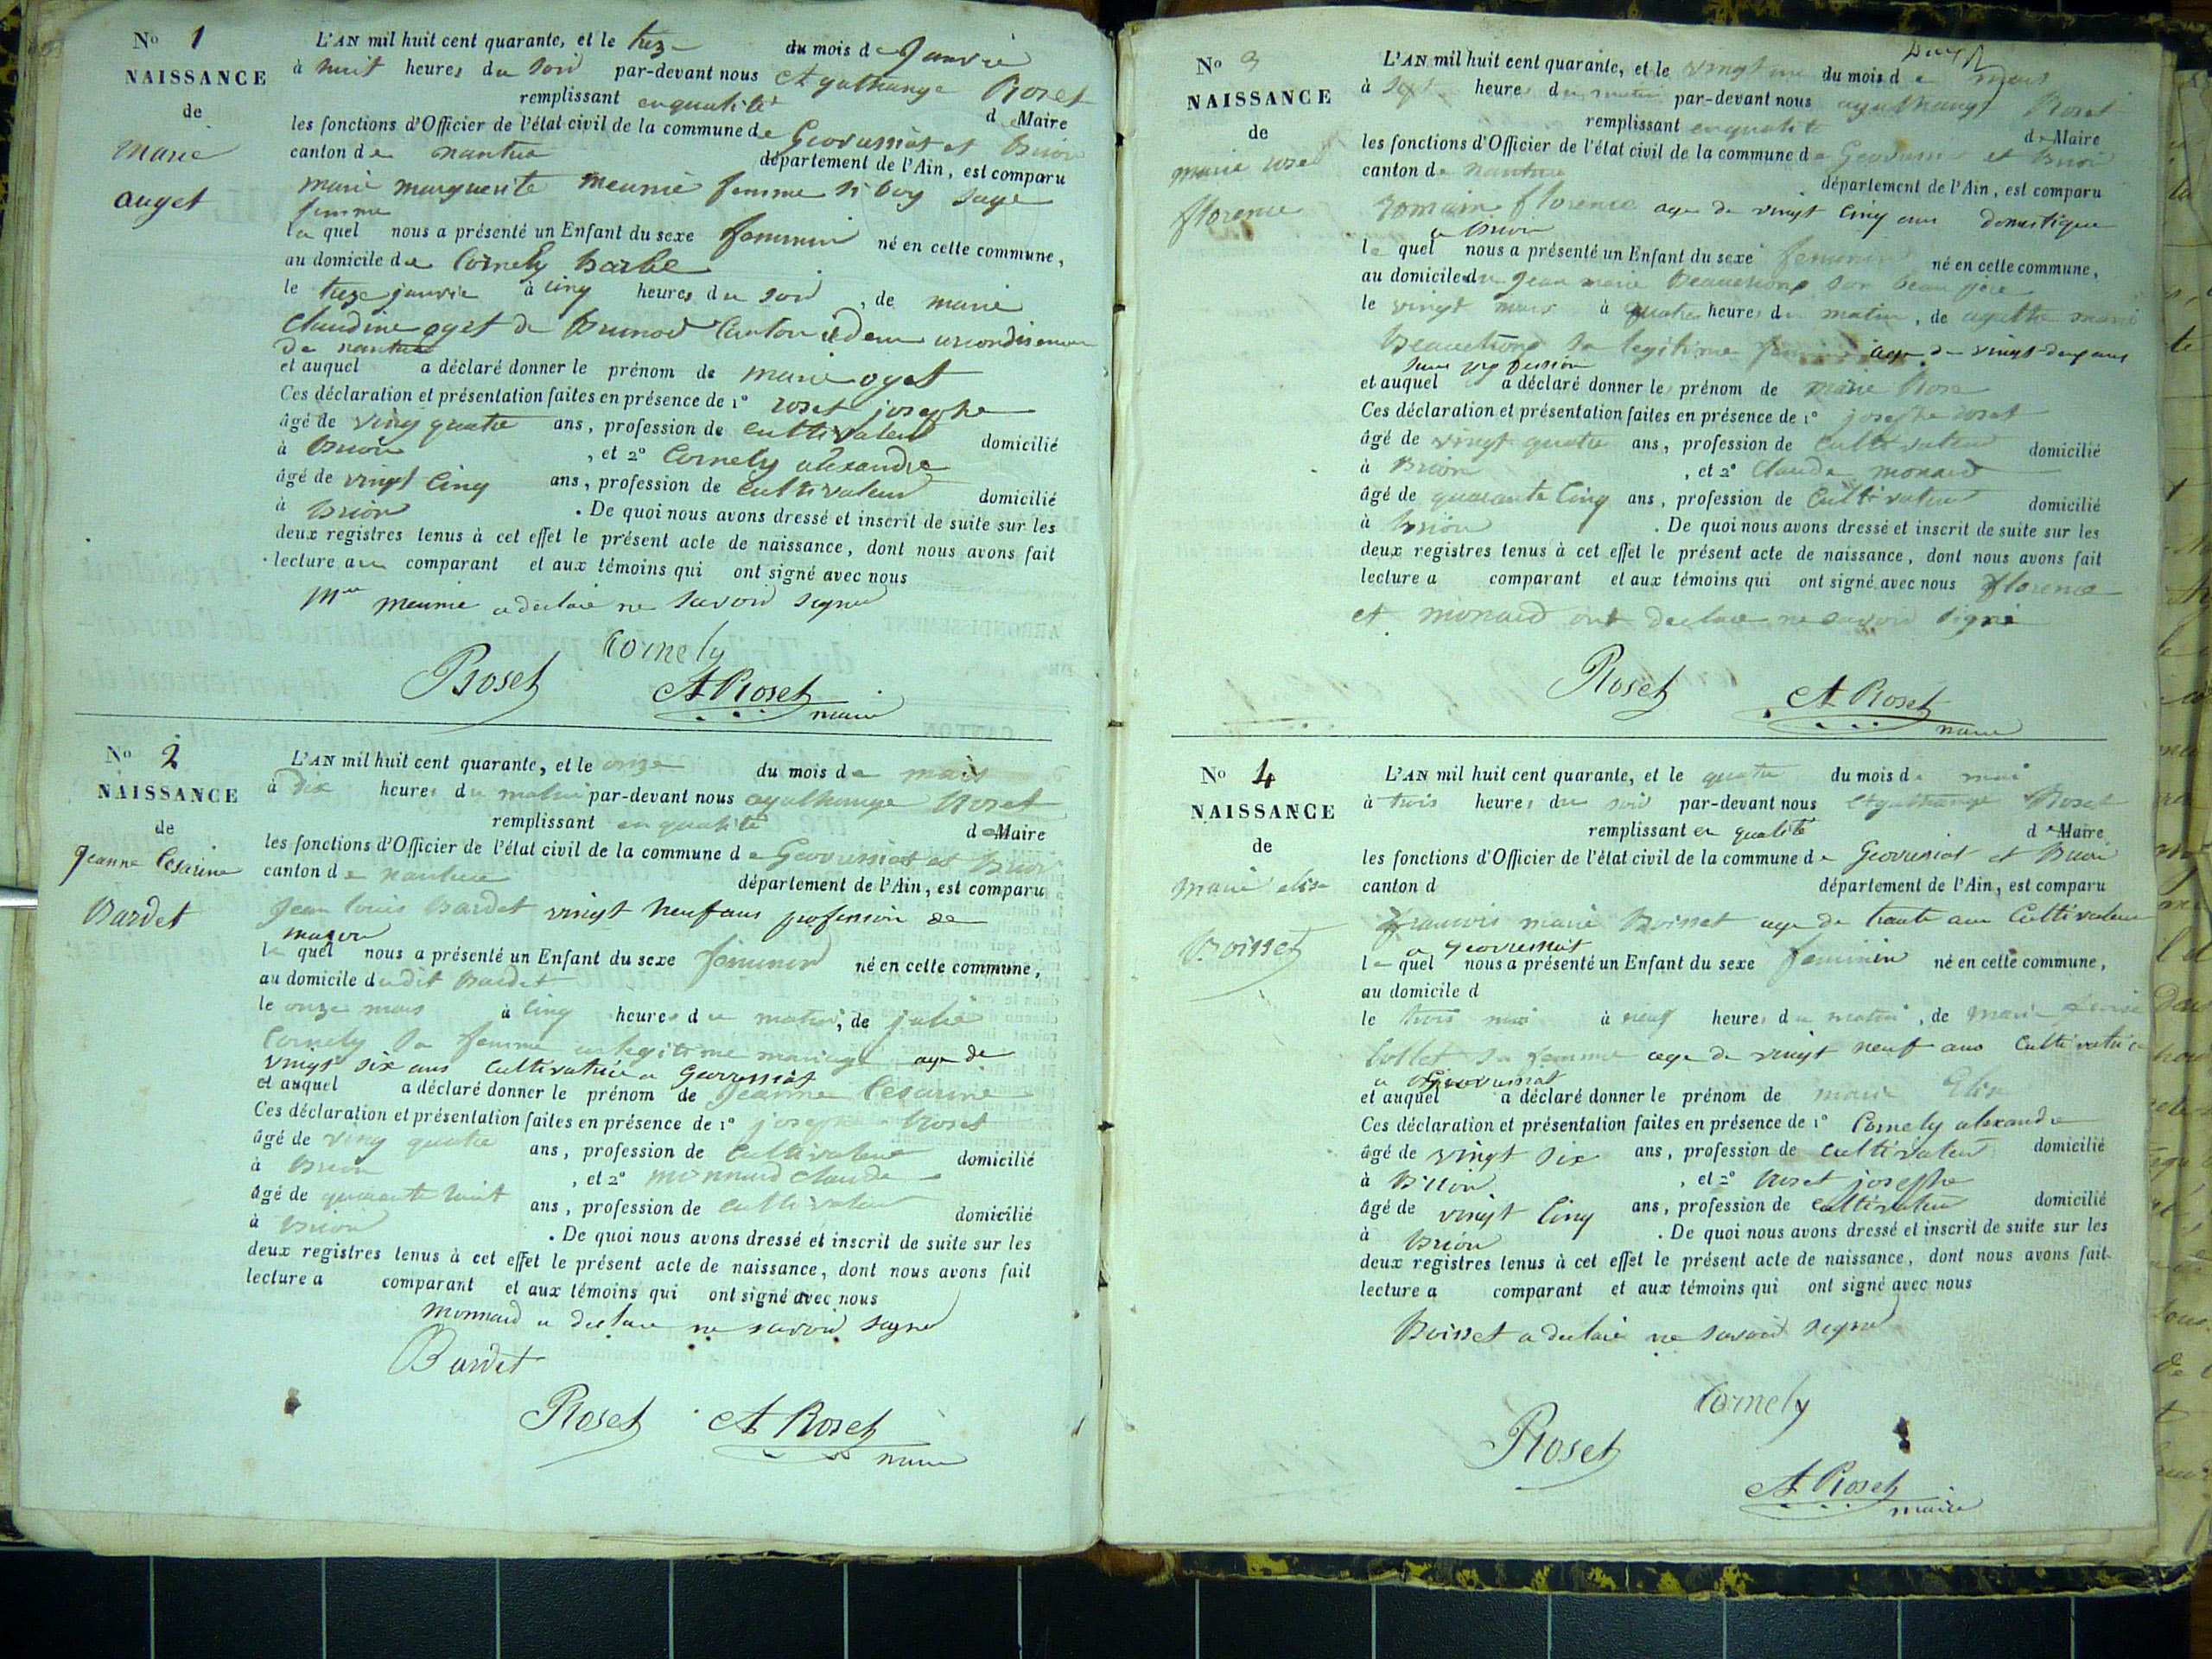 No 1
NAISSANCE
de
Marie
auget
L'AN mil huit cent quarante, et le treze du mois de Janvié
à huit heures du soir par-devant nous Agathange Roset
remplissant en qualité de Maire
les fonctions d'Officier de l'état civil de la commune de Geovressiat et Brion
canton de nantua département de l'Ain, est comparu
marie marguerite meunié femme sage
femme
la quel nous a présenté un Enfant du sexe feminin né en cette commune,
au domicile de Cornely barbe
le treze janvié à cinq heures du soir, de marie
Claudine oget de Brenod Canton idem arrondisement
de nantua
et auquel a déclaré donner le prénom de marie oget
Ces déclaration et présentation faites en présence de 1° roset josephe
âgé de ving quatre ans, profession de cultivateur domicilié
à Brion, et 2° Cornely alexandre
âgé de vingt cinq ans, profession de cultivateur domicilié
à Brion. De quoi nous avons dressé et inscrit de suite sur les
deux registres tenus à cet effet le présent acte de naissance, dont nous avons fait
lecture au comparant et aux témoins qui ont signé avec nous
meunié a declaré ne savoir signer
Cornely
Roset A Roset
maire
No 2
NAISSANCE
de
Jeanne Cesarine
Bardet
L'AN mil huit cent quarante, et le onze du mois de mars
à dix heures du matin par-devant nous agathange Roset
remplissant en qualité de Maire
les fonctions d'Officier de l'état civil de la commune de Geovressiat et Brion
canton de nantua département de l'Ain, est comparu
Jean louis Bardet vingt neuf ans profession de
maçon
le quel nous a présenté un Enfant du sexe feminin né en cette commune,
au domicile dudit Bardet
le onze mars à cinq heures du matin, de julie
Cornely sa femme en legitime mariage age de
vingt six ans Cultivatrice a Geovressiat
et auquel a déclaré donner le prénom de Jeanne Cesarine
Ces déclaration et présentation faites en présence de 1° josephe Roset
âgé de ving quatre ans, profession de Cultivateur domicilié
à Brion, et 2° monnard claude
âgé de quarante huit ans, profession de cultivateur domicilié
à Brion. De quoi nous avons dressé et inscrit de suite sur les
deux registres tenus à cet effet le présent acte de naissance, dont nous avons fait
lecture a comparant et aux témoins qui ont signé avec nous
monnard a declare ne savoir signer
Bardet
Roset A Roset
maire
No 3
NAISSANCE
de
marie rose
florence
L'AN mil huit cent quarante, et le vingt un du mois de mars
à sept heures du matin par-devant nous agathange Roset
remplissant en qualité de Maire
les fonctions d'Officier de l'état civil de la commune de Geovressiat et Brion
canton de nantua département de l'Ain, est comparu
romain florence age de vingt cinq ans domestique
a Brion
le quel nous a présenté un Enfant du sexe feminin né en cette commune,
au domicile de jean marie son beau père
le vingt mars à quatre heures du matin, de agathe marie
sa legitime age de vingt deux ans
sans profession
et auquel a déclaré donner le prénom de marie Rose
Ces déclaration et présentation faites en présence de 1° josephe roset
âgé de vingt quatre ans, profession de Cultivateur domicilié
à Brion, et 2° Claude monard
âgé de quarante cinq ans, profession de Cultivateur domicilié
à Brion. De quoi nous avons dressé et inscrit de suite sur les
deux registres tenus à cet effet le présent acte de naissance, dont nous avons fait
lecture a comparant et aux témoins qui ont signé avec nous florence
et monard ont declare ne savoir signé
Roset A Roset
maire
No 4
NAISSANCE
de
marie elise
Boisset
L'AN mil huit cent quarante, et le quatre du mois de mai
à trois heures du soir par-devant nous Agathange Roset
remplissant en qualité de Maire
les fonctions d'Officier de l'état civil de la commune de Geovressiat et Brion
canton d département de l'Ain, est comparu
françois marie Boisset age de trante ans Cultivateur
a geovressiat
le quel nous a présenté un Enfant du sexe feminin né en cette commune,
au domicile d
le trois mai à neuf heures du matin, de marie Louise
Collet sa femme age de vingt neuf ans Cultivatrice
a Geovressiat
et auquel a déclaré donner le prénom de marie Elise
Ces déclaration et présentation faites en présence de 1° Cornely alexandre
âgé de vingt six ans, profession de cultivateur domicilié
à Brion, et 2° Roset josephe
âgé de vingt cinq ans, profession de cultivateur domicilié
à Brion. De quoi nous avons dressé et inscrit de suite sur les
deux registres tenus à cet effet le présent acte de naissance, dont nous avons fait
lecture a comparant et aux témoins qui ont signé avec nous
Boisset a declaré ne savoir signer
Cornely
Roset
A Roset
maire